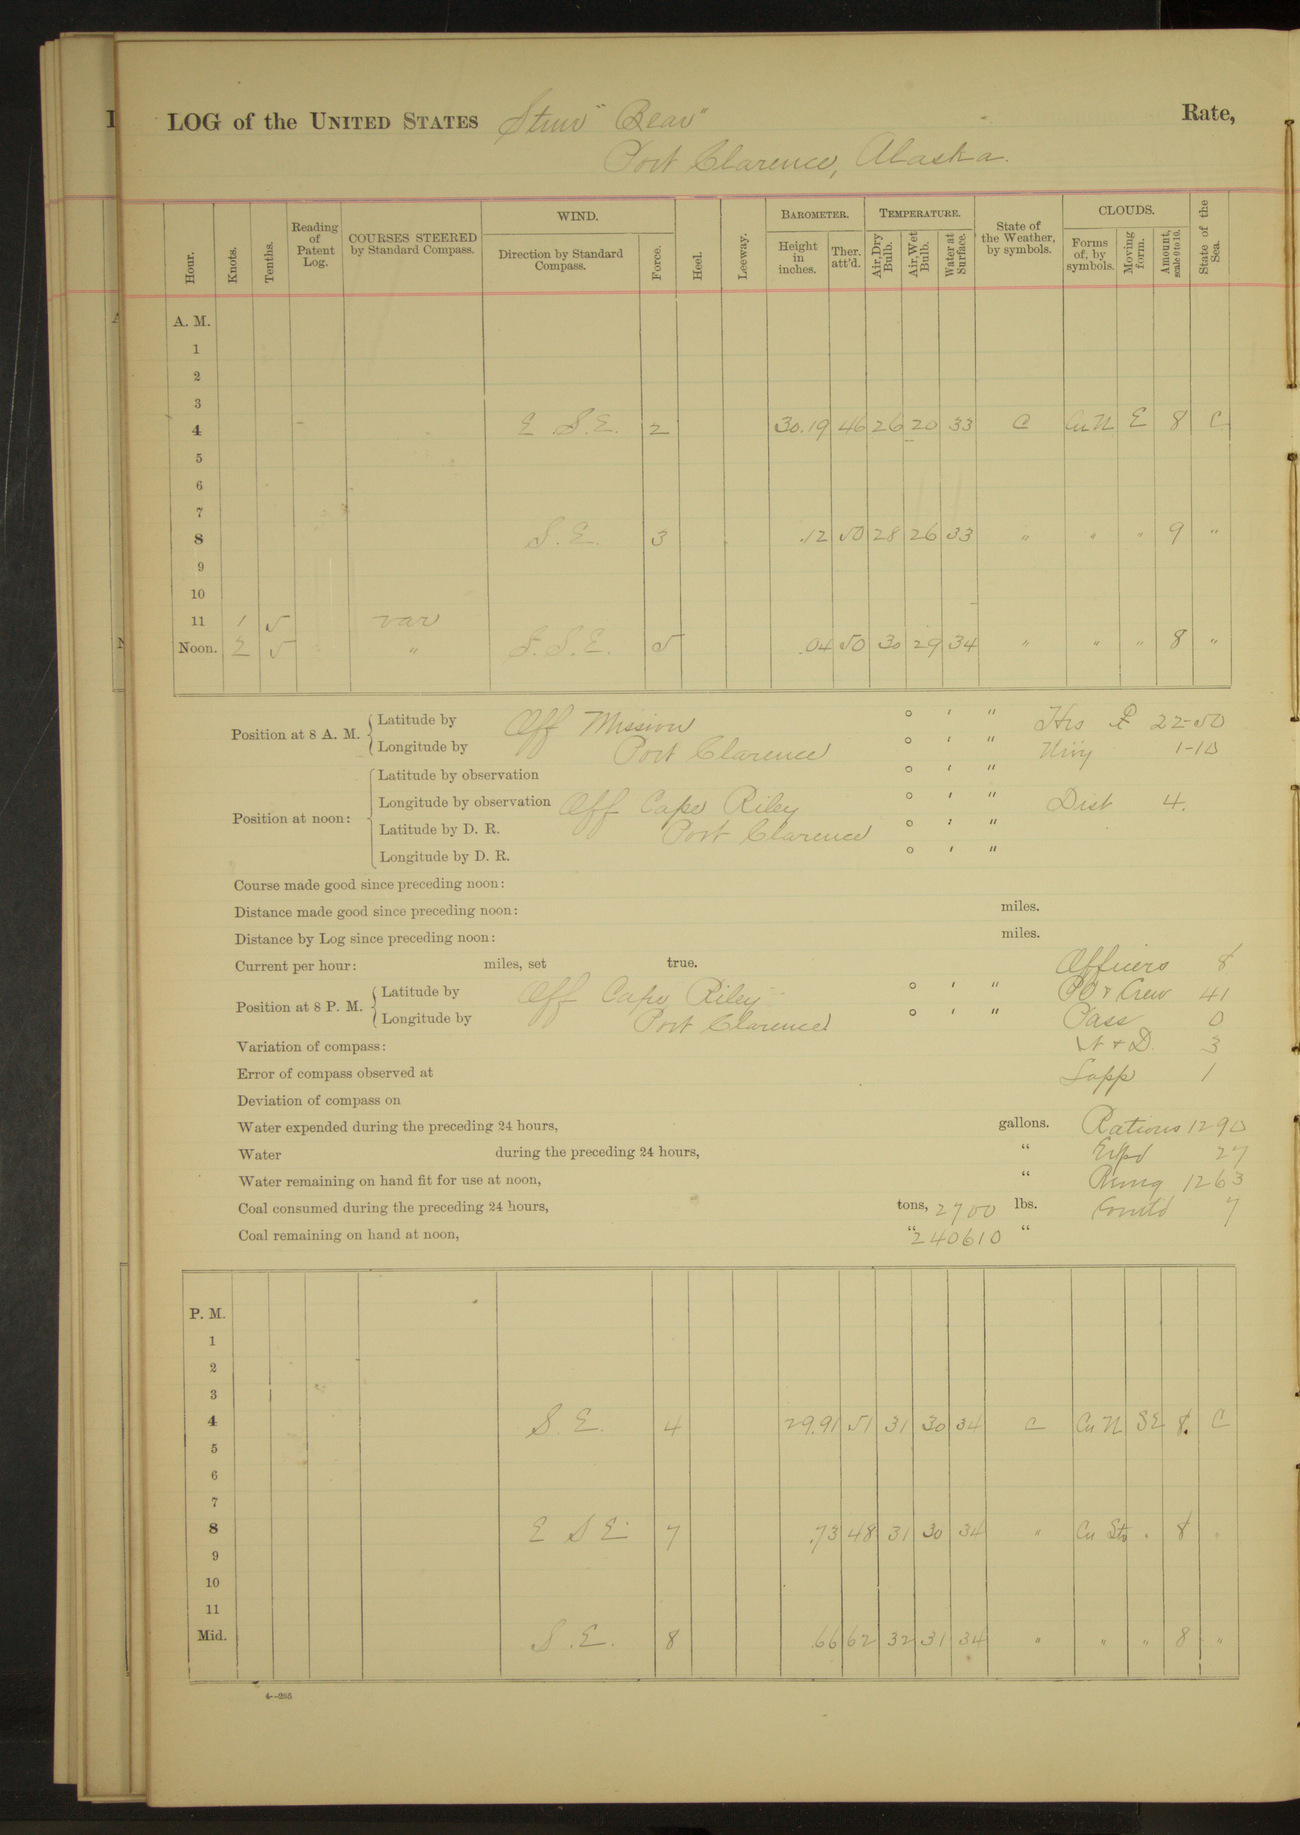 LOG of the UNITED STATES Stmr "Bear" Rate,
Port Clarence, Alaska.
Hour. Knots. Tenths. Reading of Patent Log. COURSES STEERED by Standard Compass. WIND. Direction by Standard Compass. Force. Heel. Leeway. BAROMETER. Height in inches. Ther. att'd. TEMPERATURE. Air, Dry Bulb. Air, Wet Bulb. Water at Surface. State of the Weather, by symbols. CLOUDS. Forms of, by symbols. Moving form. Amount, scale 0 to 10. State of the Sea.
A. M.
1
2
3
4 E S.E. 2 30.19 46 26 20 33 C Cu N E 8 C
5
6
7
8 S.E. 3 .12 50 28 26 33 " " " 9 "
9
10
11 1 5 var
Noon. 2 5 " S.S.E. 5 .04 50 30 29 34 " " " 8 "
Position at 8 A. M. Latitude by Off Mission ° ' " Hrs 22-50
Longitude by Port Clarence ° ' " 1-10
Position at noon: Latitude by observation ° ' "
Longitude by observation Off Cape Riley ° ' " Dist 4.
Latitude by D. R. Port Clarence ° ' "
Longitude by D. R. ° ' "
Course made good since preceding noon:
Distance made good since preceding noon: miles.
Distance by Log since preceding noon: miles.
Current per hour: miles, set true. Officers 8
Position at 8 P. M. Latitude by Off Cape Riley ° ' " PO & Crew 41
Longitude by Port Clarence ° ' " Pass 0
Variation of compass: N & D. 3
Error of compass observed at Lapp 1
Deviation of compass on
Water expended during the preceding 24 hours, gallons. Rations 1290
Water during the preceding 24 hours, " Expd 27
Water remaining on hand fit for use at noon, " Rmng 1263
Coal consumed during the preceding 24 hours, tons, 2700 lbs. Comtd 7
Coal remaining on hand at noon, " 240610 "
P. M.
1
2
3
4 S.E. 4 29.91 51 31 30 34 C Cu N SE 8. C
5
6
7
8 E S E 7 .73 48 31 30 34 " Cu Str " 8 "
9
10
11
Mid. S.E. 8 .66 62 32 31 34 " " " 8 "
4—295